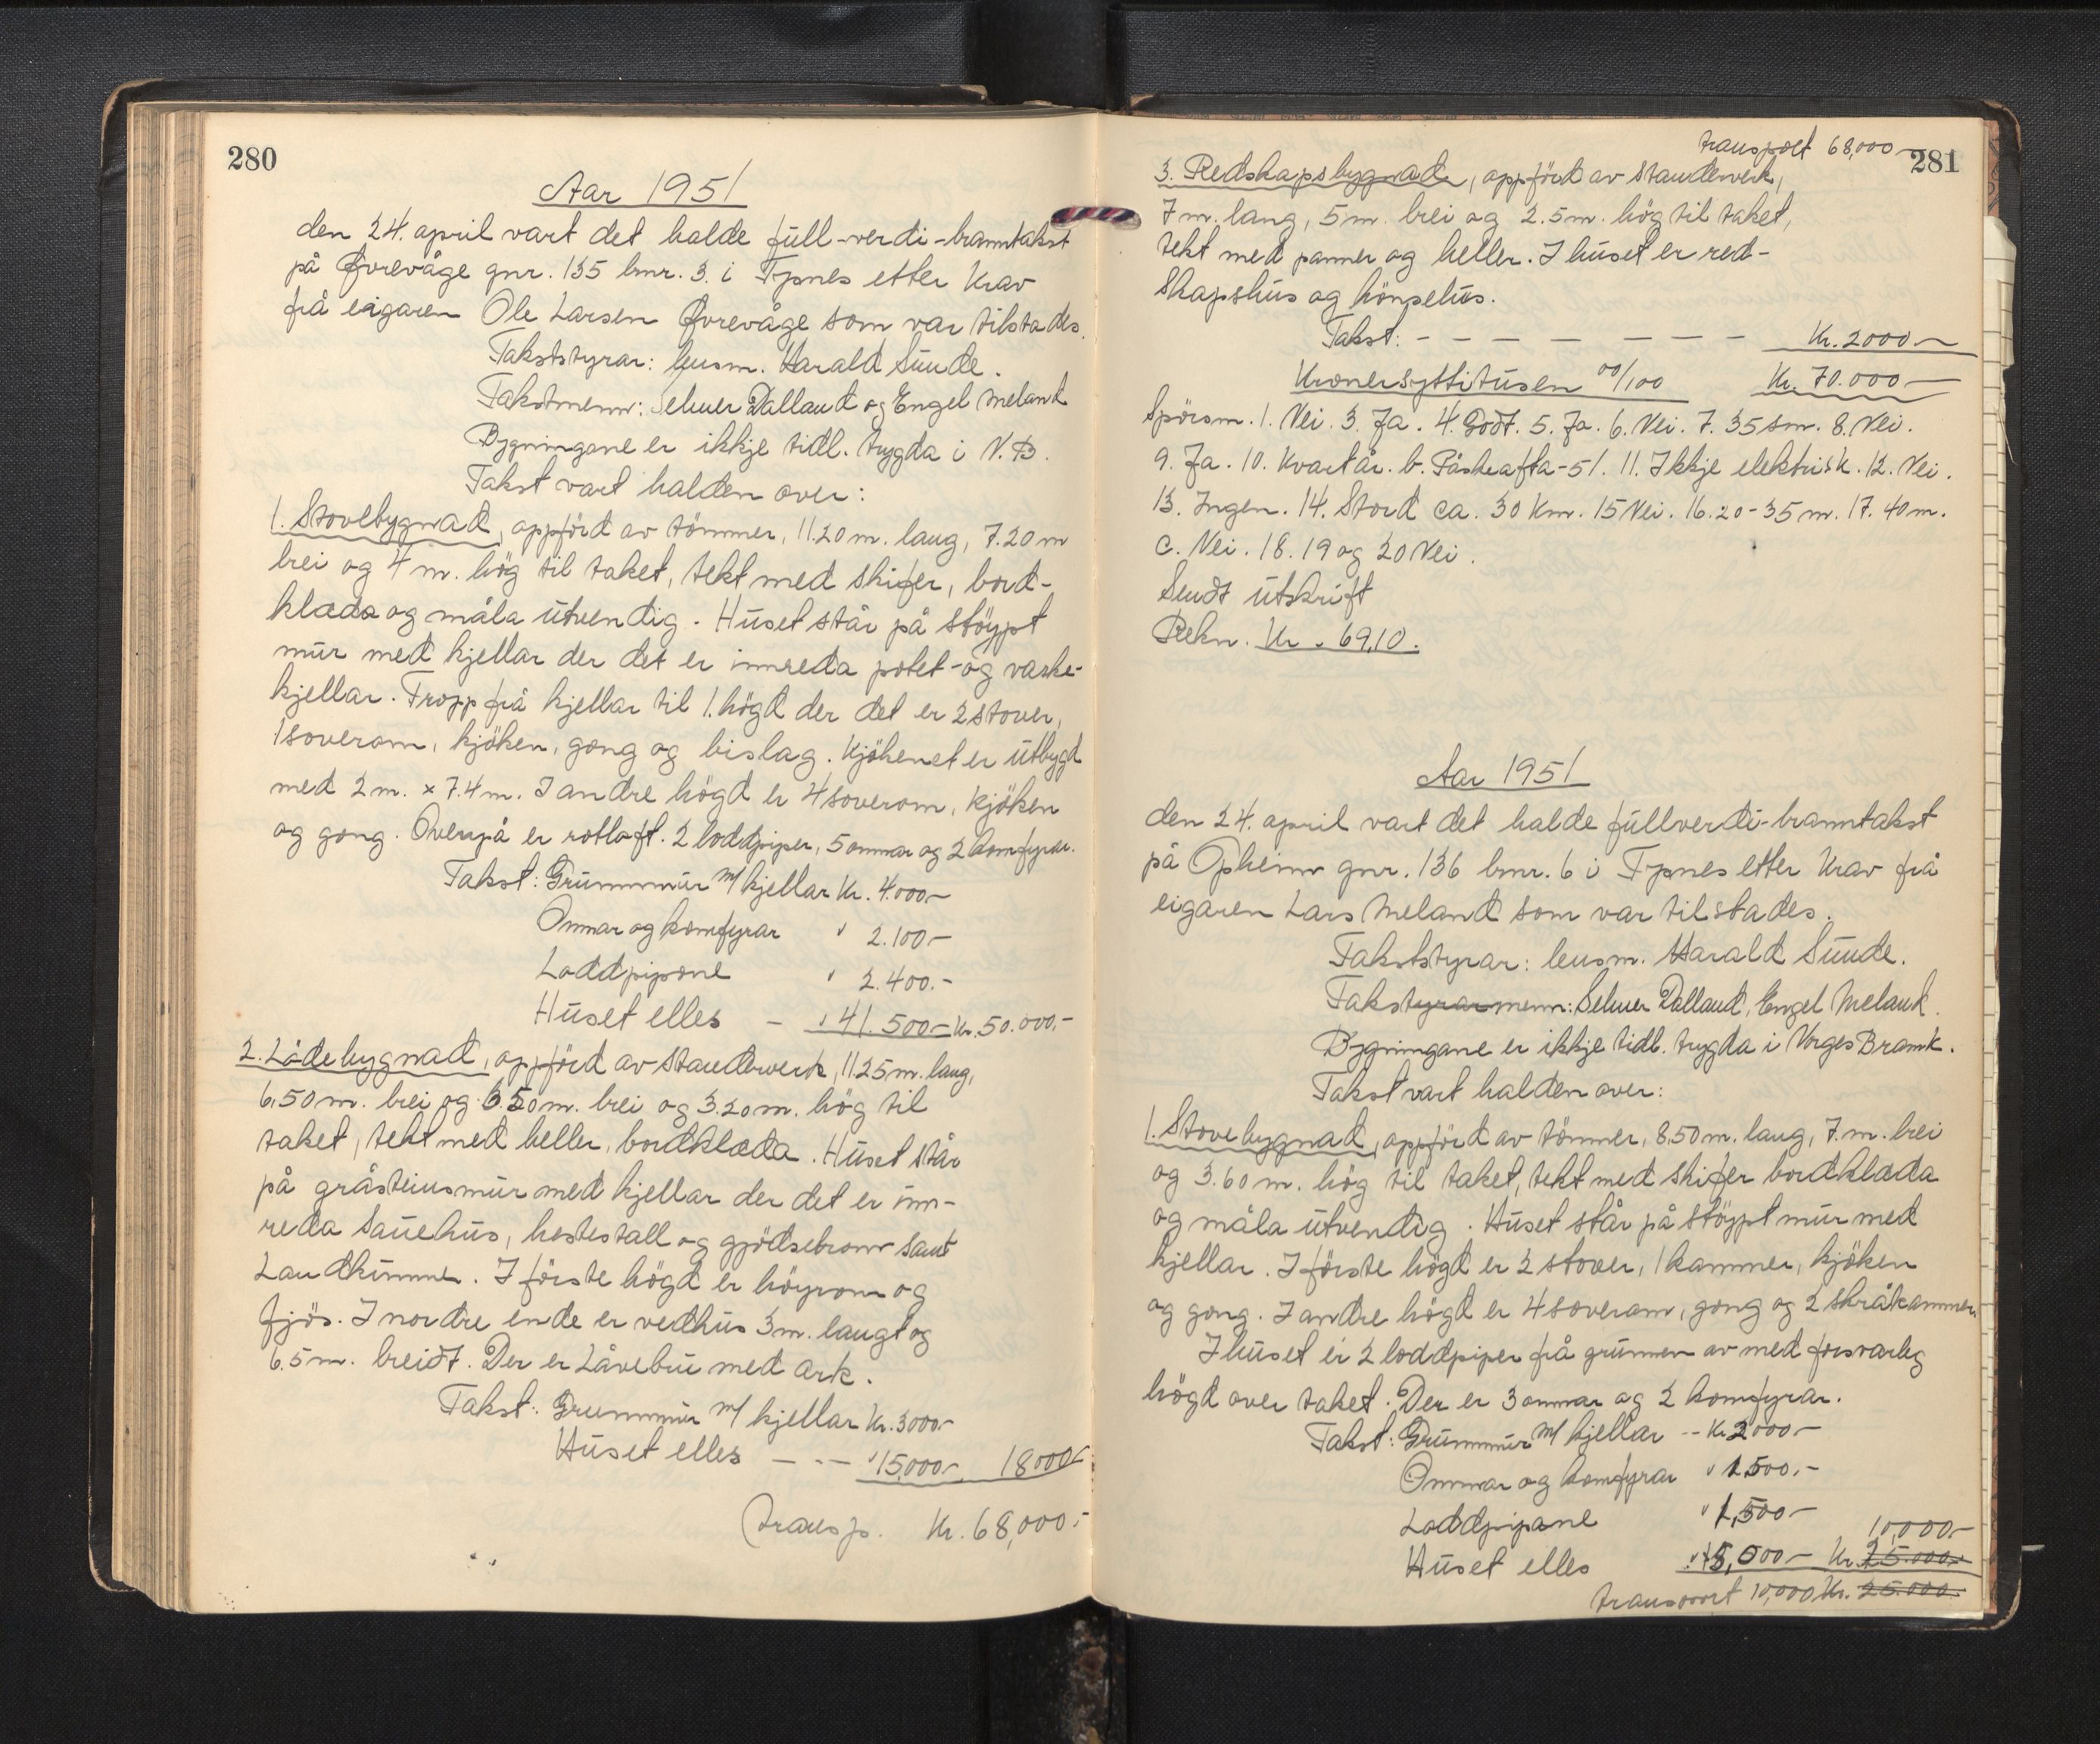 280
Aar 1951
den 24. april vart det halde full-verdi-branntakst
på Øvrevåge gnr. 135 bnr. 3. i Tysnes etter krav
frå eigaren Ole Larsen Øvrevåge som var tilstades.
Takststyrar: lensm. Harald Sunde.
Takstmenn: Selmer Dalland og Engel Meland
Bygningane er ikkje tidl. trygda i N.B.
Takst vart halden over:
1. Stovebygnad, oppförd av tömmer, 11.20 m. lang, 7.20 m
brei og 4 m. høg til taket, tekt med skifer, bord-
klædo og måla utvendig. Huset står på støypt
mur med kjellar der det er innreda potet- og vaske-
kjellar. Tropp frå kjellar til 1. högd der det er 2 stover,
1 soverom, kjöken, gong og bislag. Kjökenet er utbygd
med 2 m. x 7.4 m. I andre högd er 4 soverom, kjöken
og gong. Ovenpå er rotloft. 2 loddpiper, 5 omnar og 2 komfyrar.
Takst: Grunnmur m/ kjellar Kr. 4.000-
Omnar og komfyrar " 2.100-
Loddpipone " 2.400.-
Huset elles - " 41.500- Kr. 50.000,-
2. Lådebygnad, oppförd av standerverk, 11.25 m. lang,
6,50 m. brei og 6.50 m. brei og 3.20 m. høg til
taket, tekt med heller, bordklæda. Huset står
på gråsteinsmur med kjellar der det er inn-
reda sauehus, hestestall og gjödsebrom samt
Landkimme. I förste högd er höyrom og
fjös. I nordre ende er vedhus 3 m. langt og
6.5 m. breidt. Der er Låvebru med ark.
Takst: Grunnmur m/ kjellar Kr. 3000-
Huset elles - - - " 15.000- 18000-
Transp. Kr. 68,000.-
transport 68,000-
281
3. Redskapsbygnad, oppförd av standerverk,
7 m. lang, 5 m. brei og 2.5 m. hög til taket,
tekt med panner og heller. I huset er red-
skapshus og hönsehus.
Takst: - - - - - - - Kr. 2000-
Kronersyttitusen 00/100 Kr. 70.000-
Spörsm. 1. Nei. 3. Ja. 4. Godt. 5. Ja. 6. Nei. 7. 35 sm. 8. Nei.
9. Ja. 10. Kvart år. b. Påskeafta-51. 11. Ikkje elektrisk. 12. Nei.
13. Ingen. 14. Stord ca. 30 Km. 15 Nei. 16. 20-35 m. 17. 40 m.
c. Nei. 18. 19 og 20 Nei.
Sendt utskrift
Rekn. Kr. 69,10.
Aar 1951
den 24. april vart det halde fullverdi-branntakst
på Opheim gnr. 136 bnr. 6 i Tysnes etter krav frå
eigaren Lars Meland som var tilstades.
Takststyrar: lensm. Harald Sunde.
Takstyrarmenn: Selmer Dalland, Engel Meland.
Bygningane er ikkje tidl. trygda i Norges Brannk.
Takst vart halden over:
1. Stovebygnad, oppförd av tömmer, 8,50 m. lang, 7. m. brei
og 3.60 m. hög til taket, tekt med skifer bordklæda
og måla utvendig. Huset står på støypt mur med
kjellar. I förste högd er 2 stover, 1 kammer, kjöken
og gong. I andre högd er 4 soverom, gong og 2 skråkammer.
I huset er 2 loddpiper frå grunnen av med forsvarleg
högd over taket. Der er 3 omnar og 2 komfyrar.
Takst: Grunnmur m/ kjellar -- Kr 2000-
Omnar og komfyrar " 1.500.-
Loddpipane " 1,500-
10,000-
Huset elles " 5,000- Kr. 25.000.-
transport 10,000 Kr. 25.000.